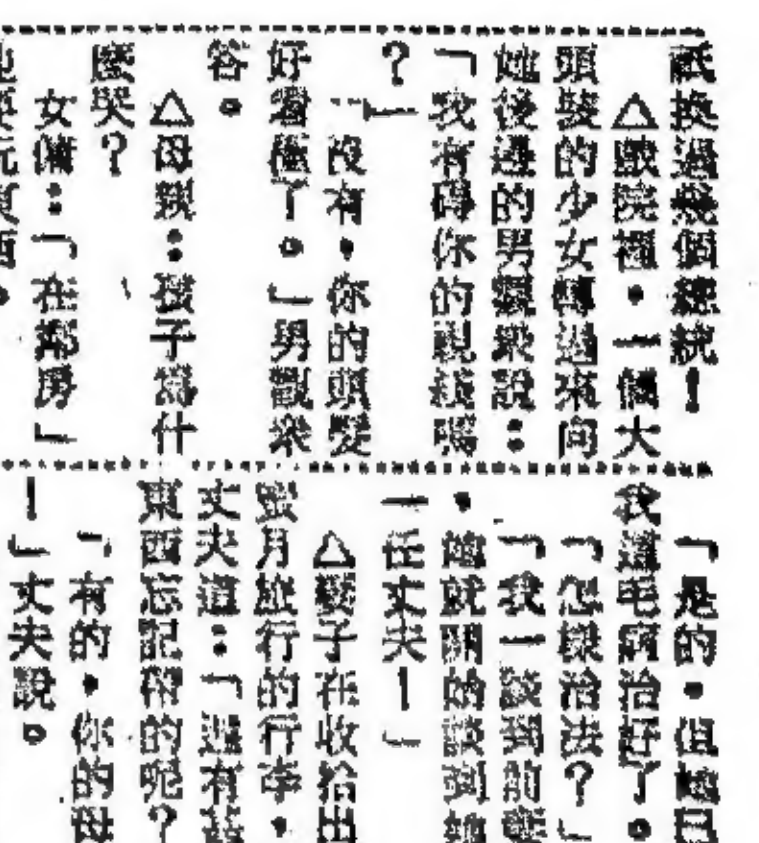 祗換過幾個總統！
△戲院裡，一個大
頭髮的少女轉過來向
她後邊的男觀衆說：
「我有碍你的視綫嗎
？」
「沒有，你的頭髮
好看極了。」男觀衆
答。
△母親：孩子爲什
麼哭？
女傭：「在鄰房」
「是的，但她已
我這毛病治好了。
「怎樣治法？」
「我一談到前妻
，她就開始談到她
一任丈夫！」
△妻子在收拾出
蜜月旅行的行李，
丈夫道：「還有甚
東西忘記帶的呢？
「有的，你的母
！」丈夫說。